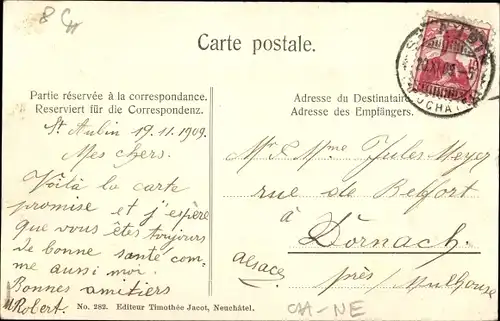 8 CH
Carte postale.
Partie réservée à la correspondance.
Reserviert für die Correspondenz.
Adresse du Destinataire
Adresse des Empfängers.
St Aubin 19.11.1909.
Mes chers.
Voilà la carte
promise et j'espère
que vous êtes toujours
de bonne santé com-
me aussi moi.
Bonnes amitiers
Robert.
Mr & Mme Jules Meyer
rue de Belfort
à
Dornach.
Alsace
près Mulhouse
No. 282. Editeur Timothée Jacot, Neuchâtel.
CH-NE